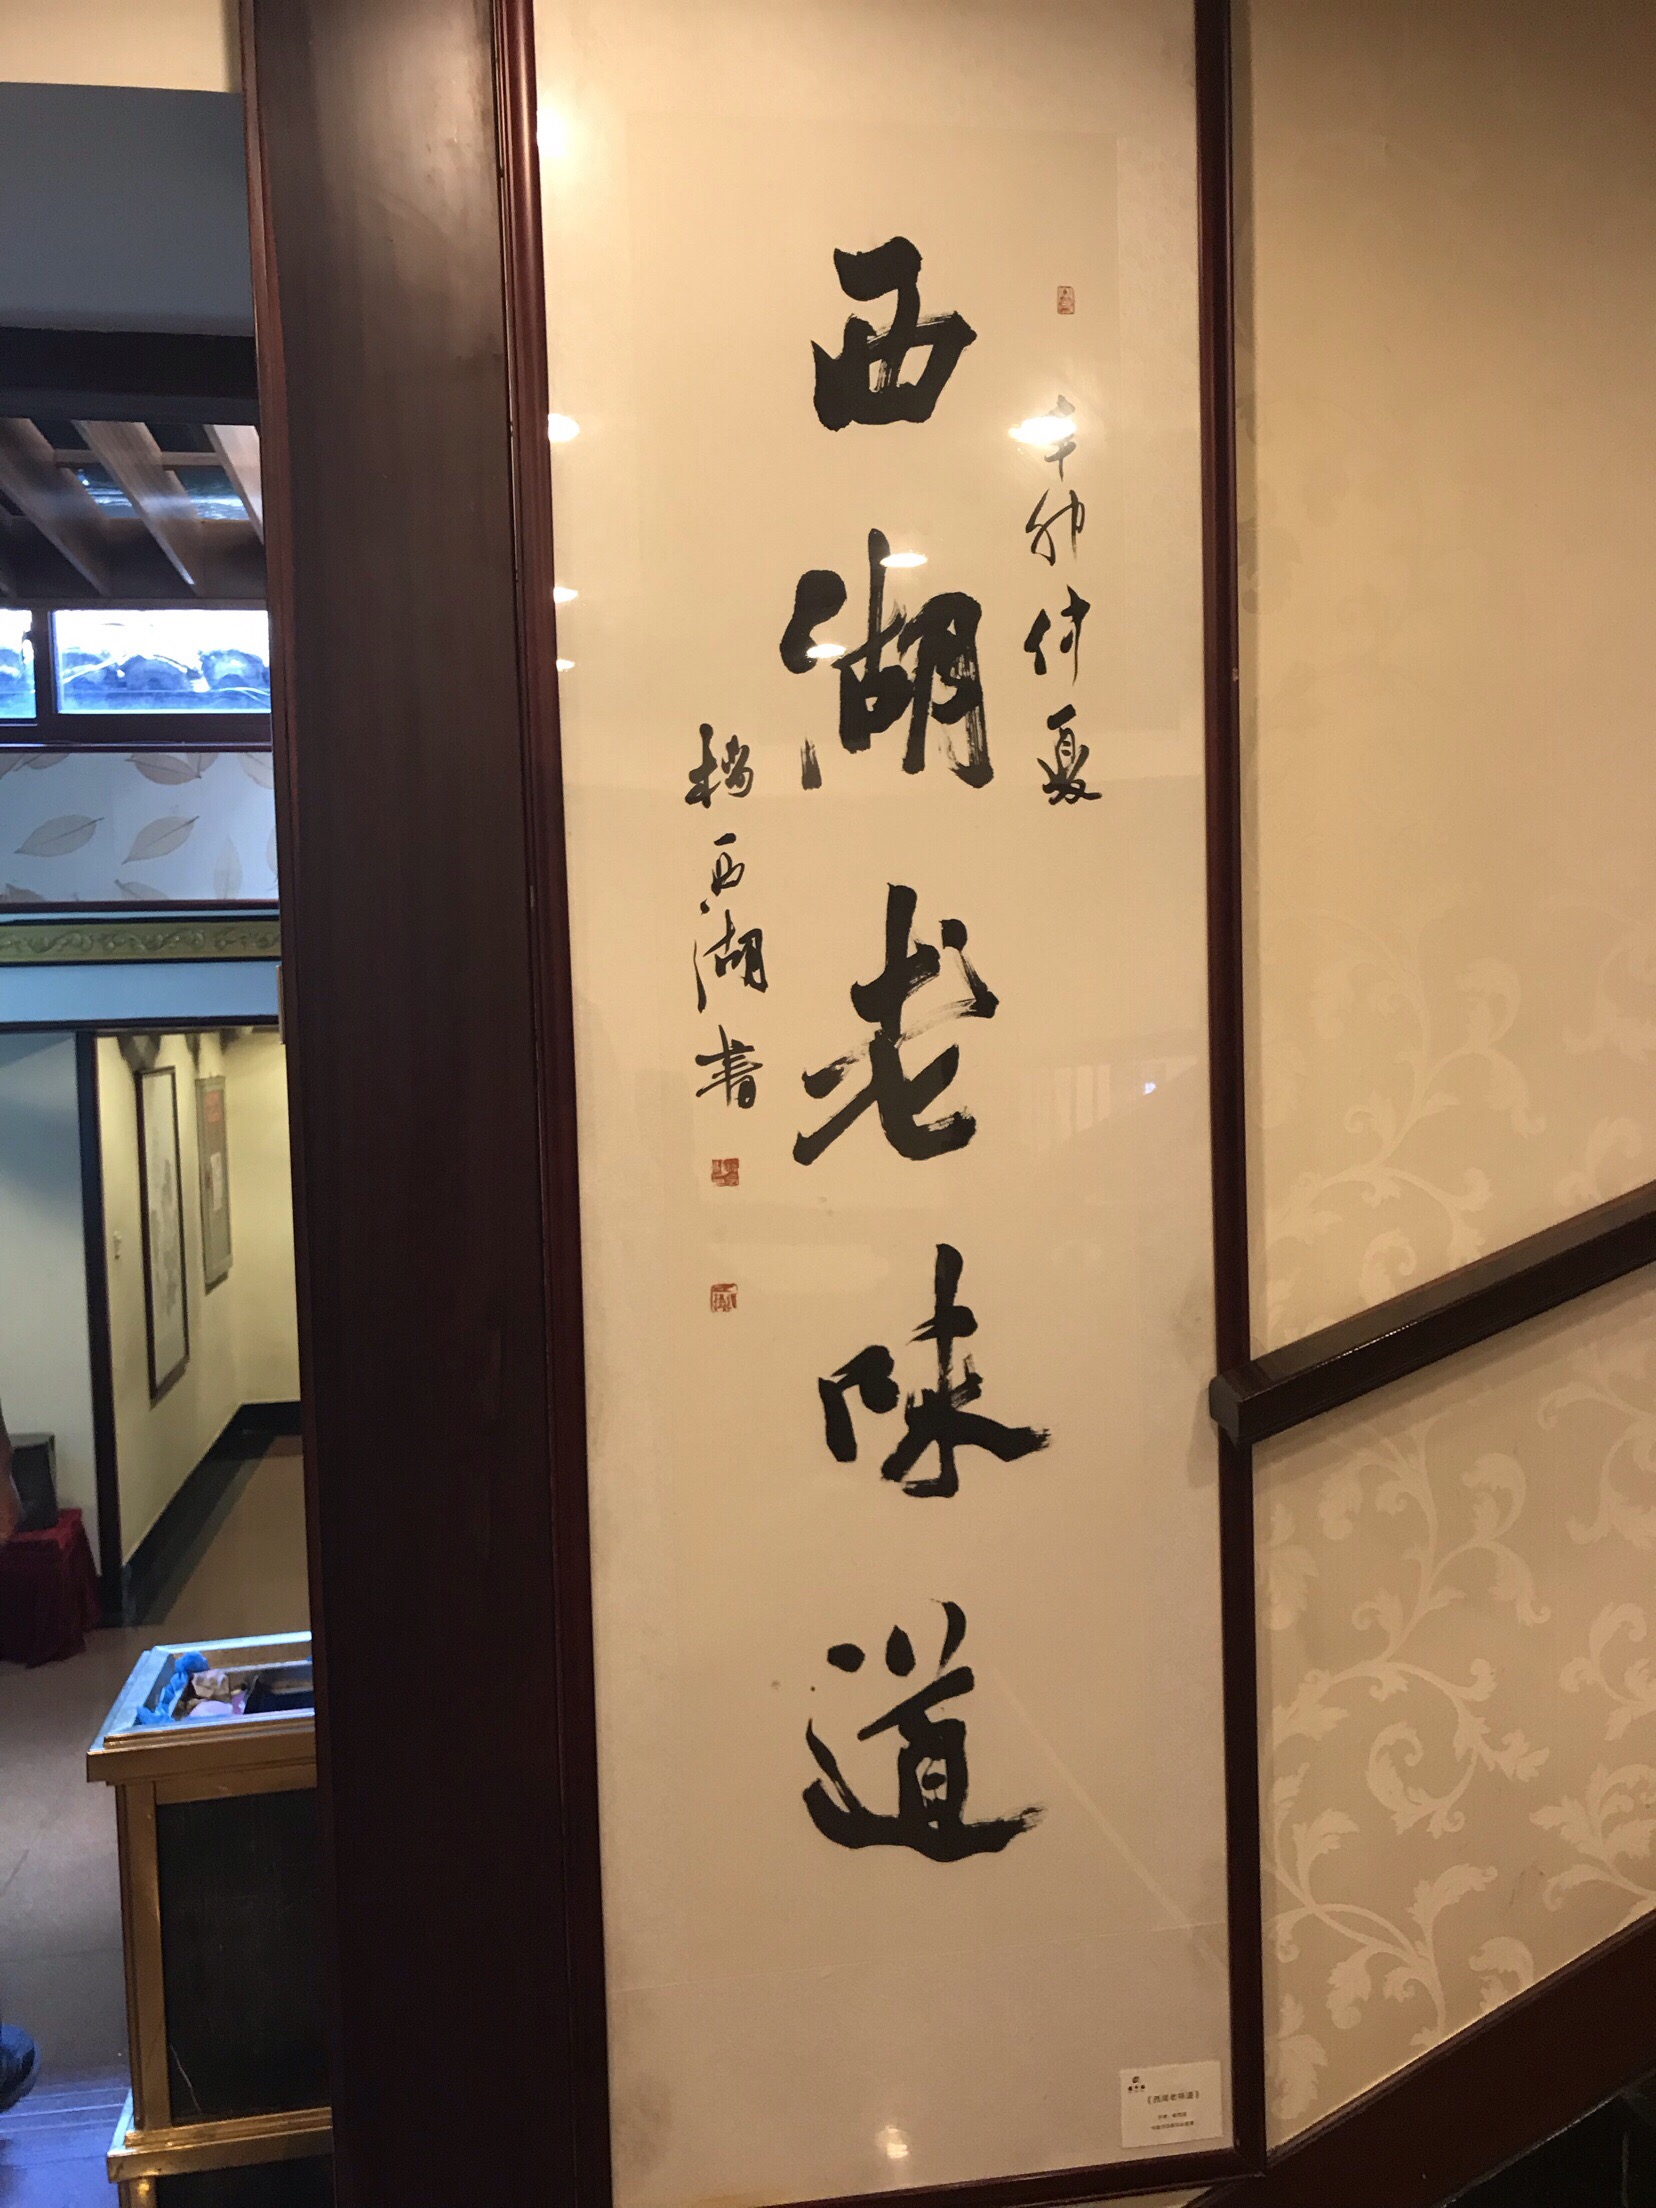 辛卯仲夏
西湖老味道
楊西湖书
《西湖老味道》